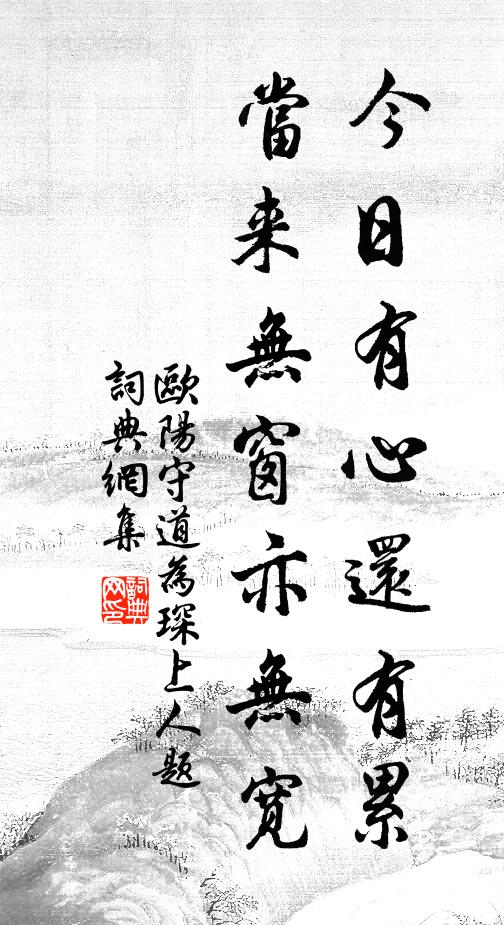 今日有心還有累
當来無窗亦無寬
歐陽守道為琛上人題
詞典網集
詞典網印